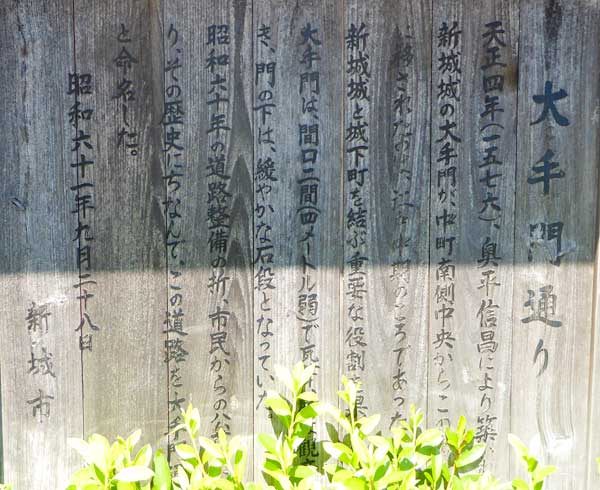 大手門通り
天正四年(一五七六)、奥平信昌により築
新城城の大手門が、中町南側中央からこの
に移されたのは、江戸中期のころであった
新城城と城下町を結ぶ重要な役割を果
大手門は、間口二間(四メートル弱)で瓦
き、門の下は、緩やかな石段となっていた
昭和六十年の道路整備の折、市民からの公
り、その歴史にちなんで、この道路を大手門
と命名した。
昭和六十一年九月二十八日
新城市